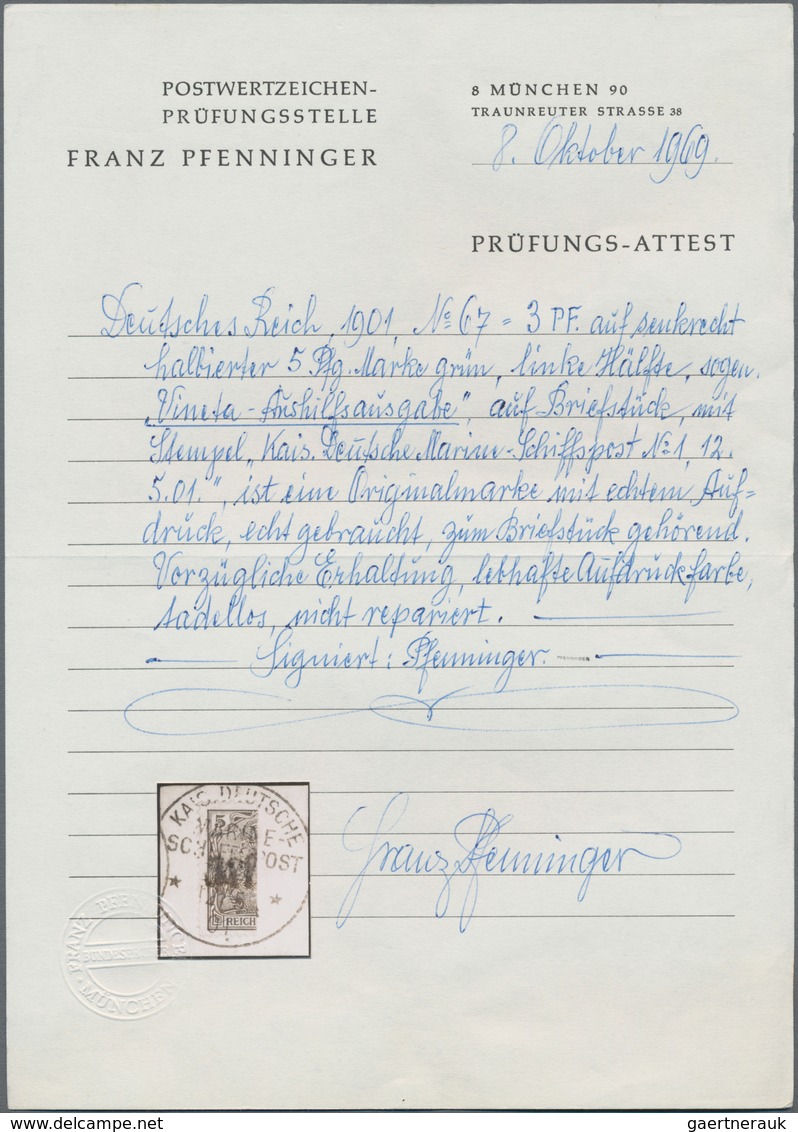 POSTWERTZEICHEN-
PRÜFUNGSSTELLE
FRANZ PFENNINGER
8 MÜNCHEN 90
TRAUNREUTER STRASSE 38
8. Oktober 1969.
PRÜFUNGS-ATTEST
Deutsches Reich, 1901, No 67 = 3 PF. auf senkrecht
halbierter 5 Pfg. Marke grün, linke Hälfte, sogen.
„Vineta-Aushilfsausgabe", auf Briefstück, mit
Stempel „Kais. Deutsche Marine-Schiffspost No 1, 12.
5.01.", ist eine Originalmarke mit echtem Auf=
druck, echt gebraucht, zum Briefstück gehörend.
Vorzügliche Erhaltung, lebhafte Aufdruckfarbe,
tadellos, nicht repariert.
Signiert: Pfenninger.
KAIS. DEUTSCHE
MARINE-
SCHIFFSPOST
5
REICH
Franz Pfenninger
FRANZ PFENNINGER
MÜNCHEN
gaertnerauk